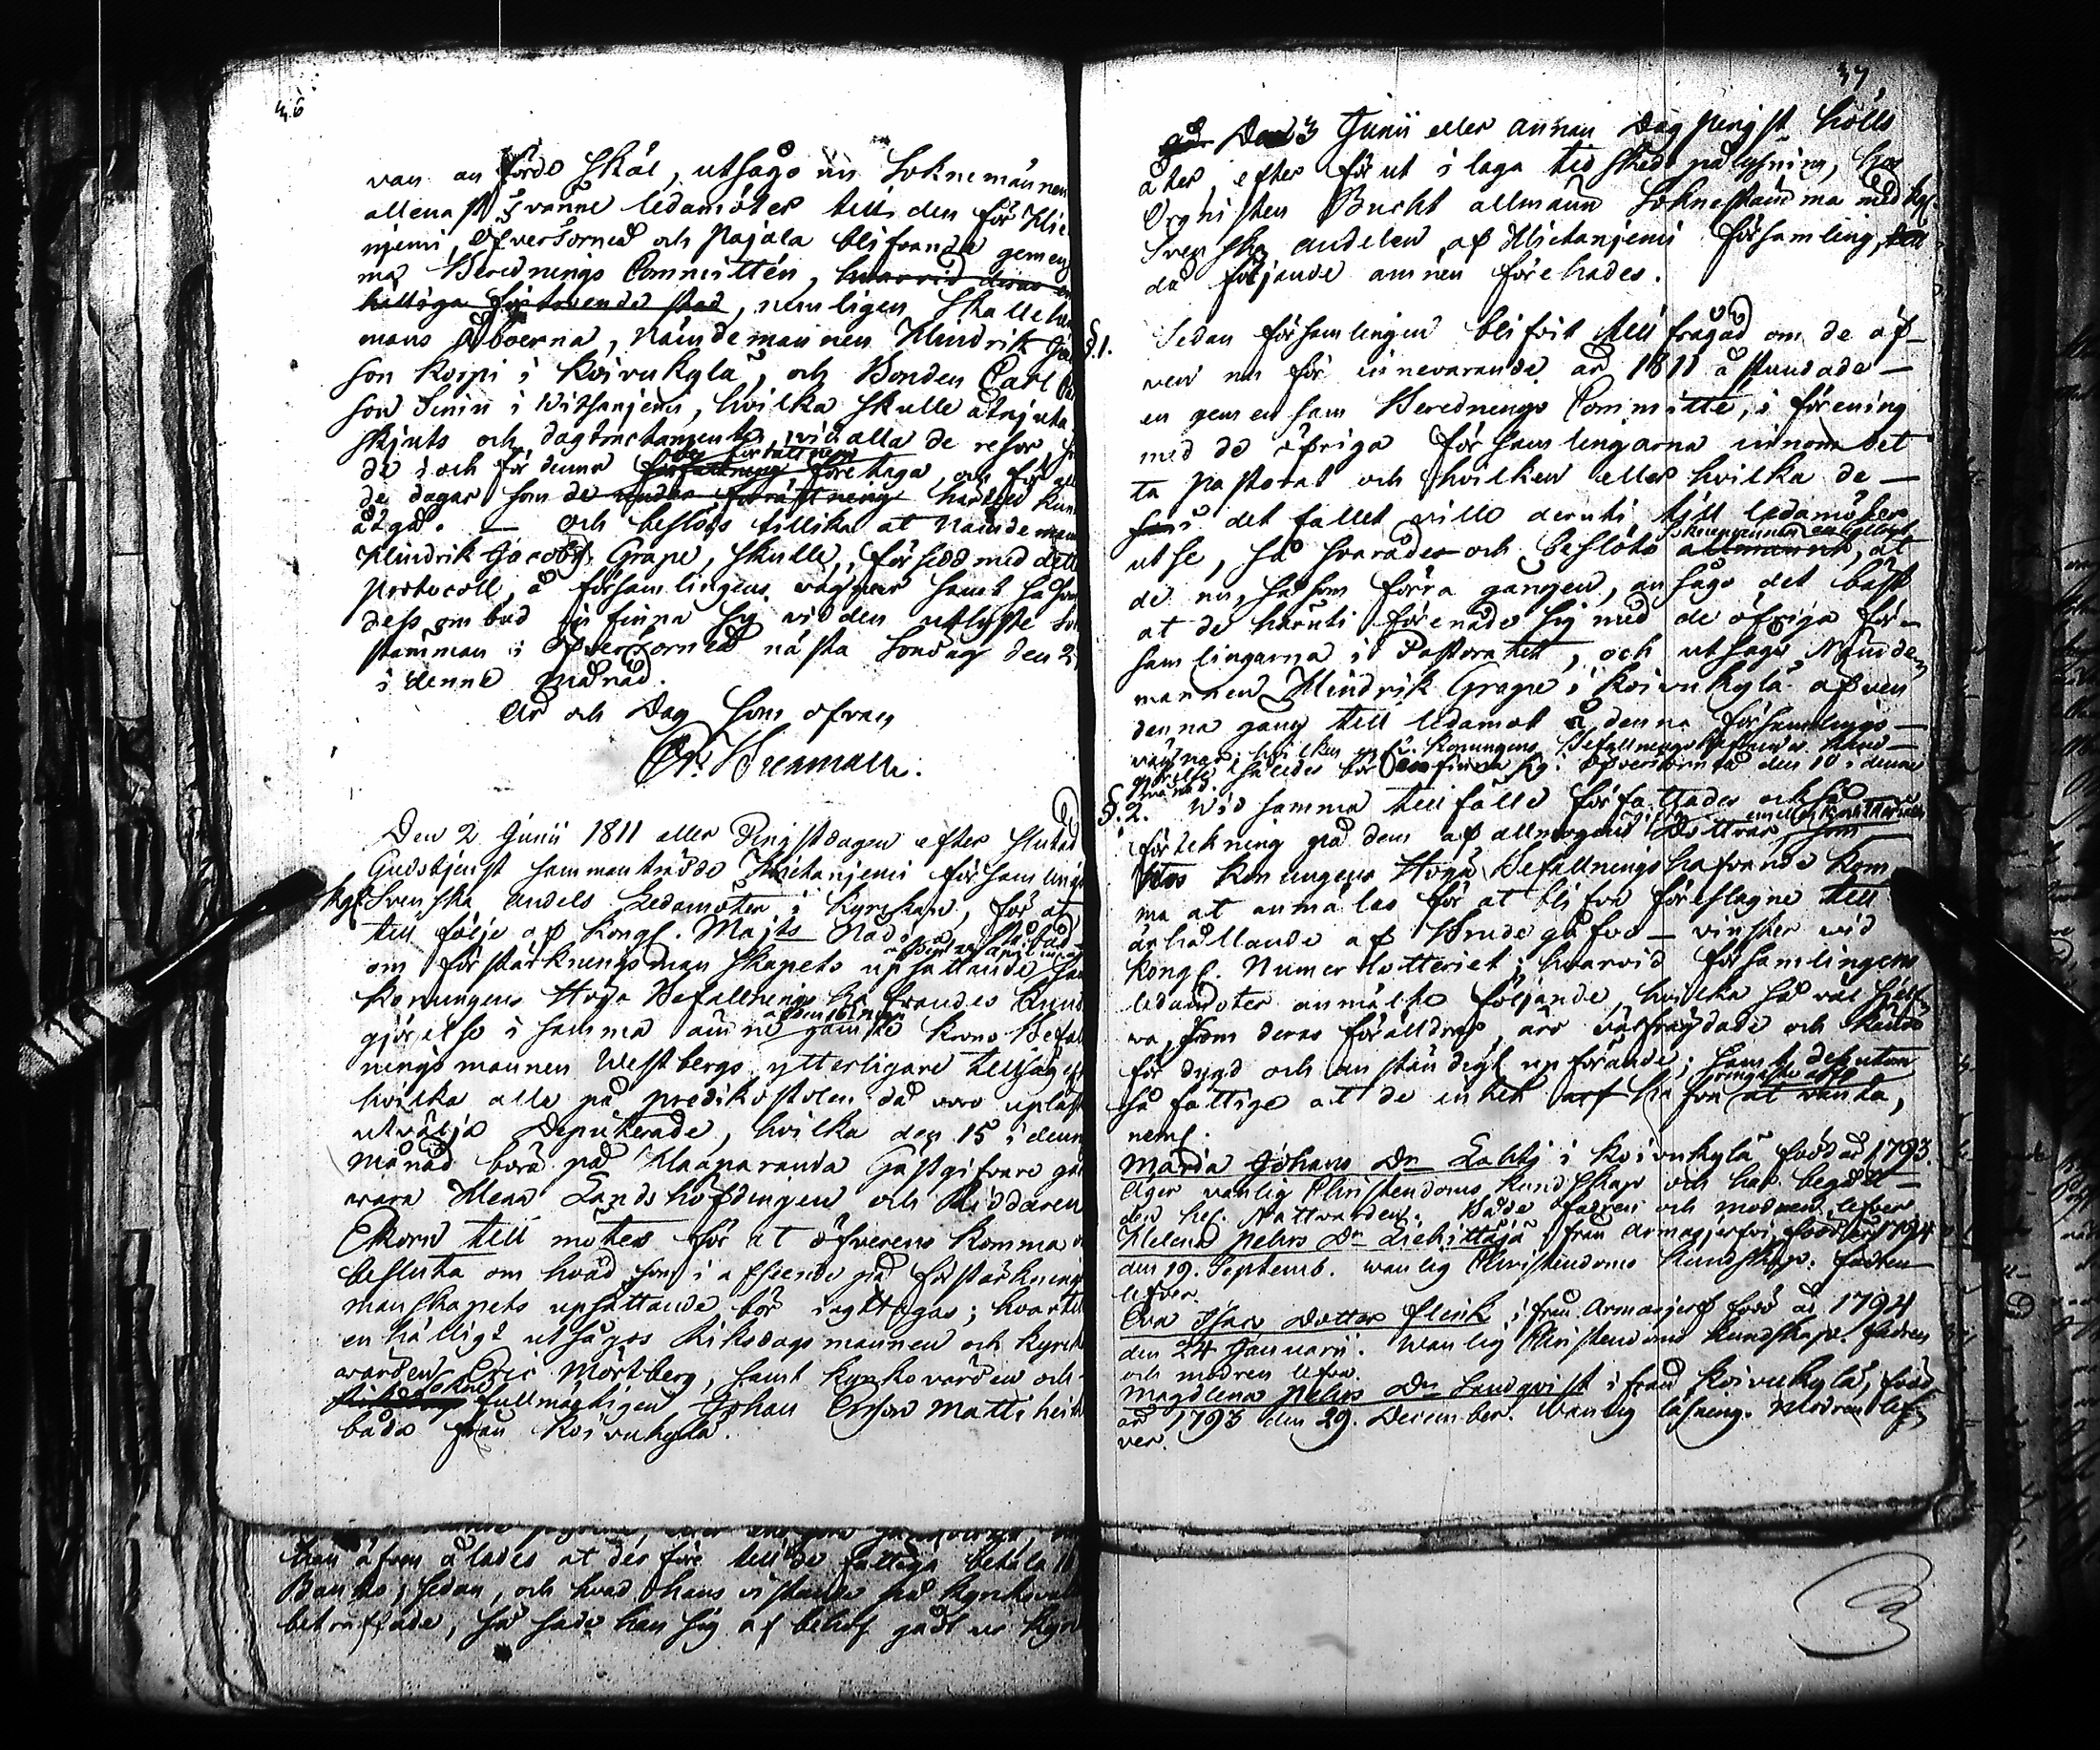 36
van an förde skäl, utsågo nu Soknemännen
allenast tvänne ledamöter till den för Hie
njemi, Öfvertorneå och Pajala blifvande gemen
ma Berednings Committén, hvarvid deras en
hälliga förtroende stad, nemligen Skatte hem
mans Åboerna, Nämndemannen Hindrik
son Korpi i Koivukylä, och Bonden Carl
son Simu i Witsanjemi, hvilka skulle åtnjuta
skjuts och dagtractamente, vid alla de resor,
de i och för denna förfallning företaga, och för
de dagar som de under förrättning härtill kun
åtgå. — Och beslöts tillika at Nämndeman
Hindrik Jacobss. Grape, skulle, försedd med dett
Protocoll, å församlingens vägnar samt såsom
dess ombud sig infinna vid den utlyste So
stämman i Öfvertorneå nästa Söndag den 2
i denne Månad.
År och Dag som ofvan
Wrenman.
Den 2 Junii 1811 eller Pingstdagen efter slutad
Gudstjenst sammanträdde Hietanjemi församlings
Kgl. Svenska andels Ledamöter i Kyrckan, för at
till följe af Kongl. Majts Nåd. Påbud
om förstärkningsmanskapets uppsättande
Konungens Höga Befallnings hafvandes Kund
gjörelse i samma ämne samt Krono Befal
af den 16 nästl.
ningsmannen Westbergs ytterligare tillsägelse
hvilka alla på predikostolen då voro upläst
utvälja Deputerade, hvilka den 15 i denne
Månad borde på Haaparanda Gästgifvare gå
vara Herr Landshöfdingen och Riddaren
Ekorn till mötes för at öfverens komma o
besluta om hvad som i afseende på förstärknings
manskapets upsättande bör iagttagas; hvartil
enhälligt utsågos Riksdagsmannen och Kyrck
värden Eric Mörtberg, samt Kyrkovärden och
Sokne
fullmäktigen Johan Ersson Mattiheik
båda från Koivukylä.
han äfven ålades at derföre till de fattiga betala 16
Banco; sedan, och hvad hans vistande på Kyrkoval
beträffade, så sade han sig af behof gådt ur Kyr
37,
Den 3 Junii eller annan Dag Pingst hölls
åter, efter förut i laga tid skedd pålysning, hos
Orghisten Bucht allmänn Soknestämma med Kgl.
Svenska andelen af Hietanjemi församling,
då följande ämnen förehades.
§.1. Sedan församlingen blifvit till frågad om de äf-
ven nu för innevarande år 1811 åstundade —
en gemensam Berednings Committé, i förening
med de öfriga församlingarna innom det
ta pastorat och hvilken eller hvilka de —
i det fallet ville deruti till ledamöter
utse, så svarades och beslöts Soknemännen enhelligt, at
de nu, såsom förra gången, ansågo det bäst
at de häruti förenade sig med de öfriga för-
samlingarna i Pastoratet, och utsågo Nämnde-
mannen Hindrik Grape i Koivukylä äfven
denna gång till ledamot å denna församlings —
vägnar; hvilken enl. Konungens Befallningshafvandes Kund-
görelse således bör infinna sig i Öfvertorneå den 10 i denne
månad.
§.2. Wid samma tillfälle författades också
förtekning på dem af allmogens Döttrar, som
hos Konungens Höga Befallningshafvande Kom
ma at anmälas för at blifva föreslagne till
ärhållande af Brudegåfvo — vinster vid
Kongl. Numer Lotteriet; hvarvid församlingens
ledamöter anmälte följande, hvilka så väl sjelf
va, som deras föräldrar, äro välfrägdade och kända
för dygd och anständigt upförande; samt desutan
så fattige at de intet arf hafva at vänta,
neml.
Maria Johans Dr. Lahti i Koivukylä född åd 1793.
Äger vanlig Christendoms Kundskap och har begåt-
den hel. Nattvarden. Både fadren och modren lefver
Helena Pehrs Dr. Liehittäjä från Armasjerfvi född år 1794
den 19. Septemb. vanlig Christendoms Kundskap. Fadren
lefver.
Eva Isac Dotter Flink, från Armasjerf född åd 1794
den 24 Januarii. Wanlig Christendoms Kundskap. Fadren
och modren lefva.
Magdlena Pehrs Dr. Landqvist ifrån Koivukylä, född
åd 1793 den 29. December. Wanlig läsning. Modren lef-
ver.